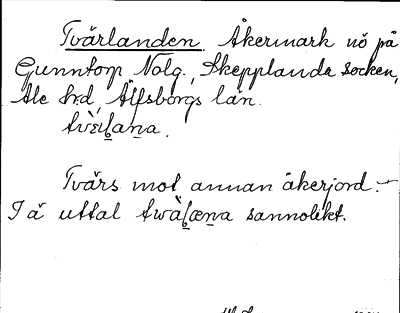 Tvärlanden. Åkermark nö på
Gunntorp Nolg., Skepplanda socken,
Ale hrd, Älfsborgs län.
Tvärs mot annan åkerjord. –
I ä uttal sannolikt.